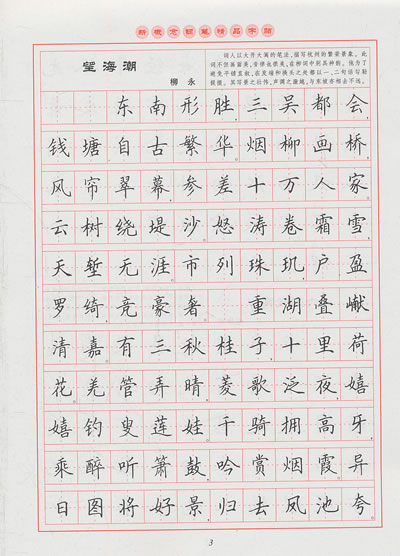 望海潮
柳永
词人以大开大阖的笔法,描写杭州的繁荣景象。此
词不但画面美,音律也很美,在柳词中别具神韵。他为了
避免平铺直叙,在发端和换头之处都以一、二句话勾勒
提掇,其写景之壮伟,声调之激越,与东坡亦相去不远。
东南形胜,三吴都会,
钱塘自古繁华。烟柳画桥,
风帘翠幕,参差十万人家。
云树绕堤沙。怒涛卷霜雪,
天堑无涯。市列珠玑,户盈
罗绮,竞豪奢。 重湖叠巘
清嘉。有三秋桂子,十里荷
花。羌管弄晴,菱歌泛夜,嬉
嬉钓叟莲娃。千骑拥高牙,
乘醉听箫鼓,吟赏烟霞。异
日图将好景,归去凤池夸。
3